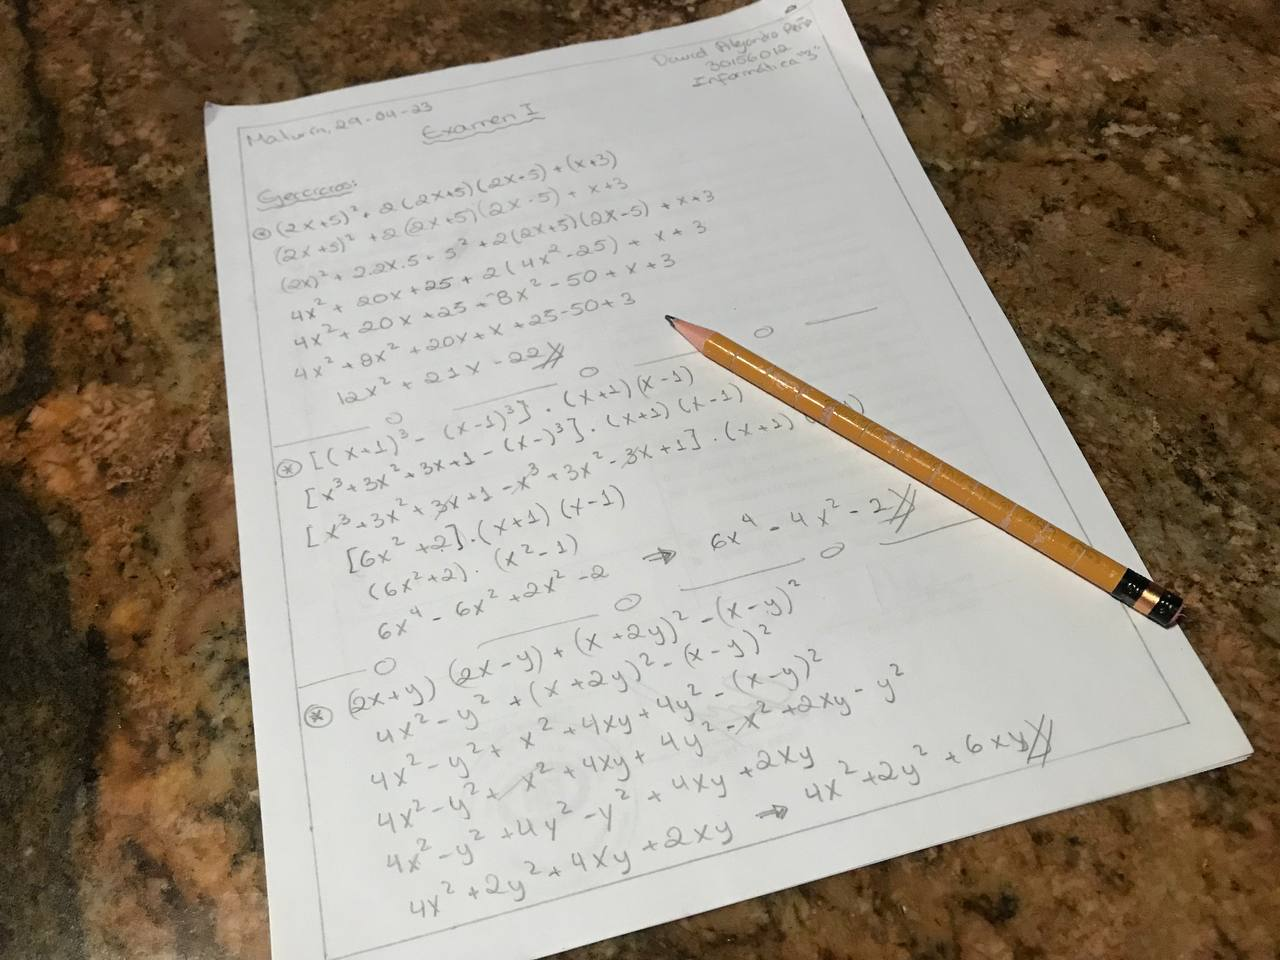 David Alejandro Peña
30156012
Informática "3"
Maturín, 29-04-23
Examen I
Ejercicios:
(2x+5)² + 2(2x+5)(2x-5) + (x+3)
(2x+5)² + 2(2x+5)(2x-5) + x+3
(2x)² + 2.2x.5 + 5² + 2(2x+5)(2x-5) + x+3
4x² + 20x + 25 + 2(4x²-25) + x + 3
4x² + 20x + 25 + 8x² - 50 + x + 3
4x² + 8x² + 20x + x + 25-50+3
12x² + 21x - 22
[(x+1)³ - (x-1)³] . (x+1)(x-1)
[x³+3x²+3x+1 - (x-)³] . (x+1)(x-1)
[x³+3x²+3x+1 -x³+3x²-3x+1] . (x+1)
[6x²+2].(x+1)(x-1)
(6x²+2). (x²-1)
6x⁴ - 6x² + 2x² - 2 ⇒ 6x⁴ - 4x² - 2
(2x+y) (2x-y) + (x+2y)² - (x-y)²
4x² - y² + (x+2y)² - (x-y)²
4x² - y² + x² + 4xy + 4y² - (x-y)²
4x² - y² + x² + 4xy + 4y² - x² + 2xy - y²
4x² - y² + 4y² - y² + 4xy + 2xy
4x² + 2y² + 4xy + 2xy ⇒ 4x² + 2y² + 6xy